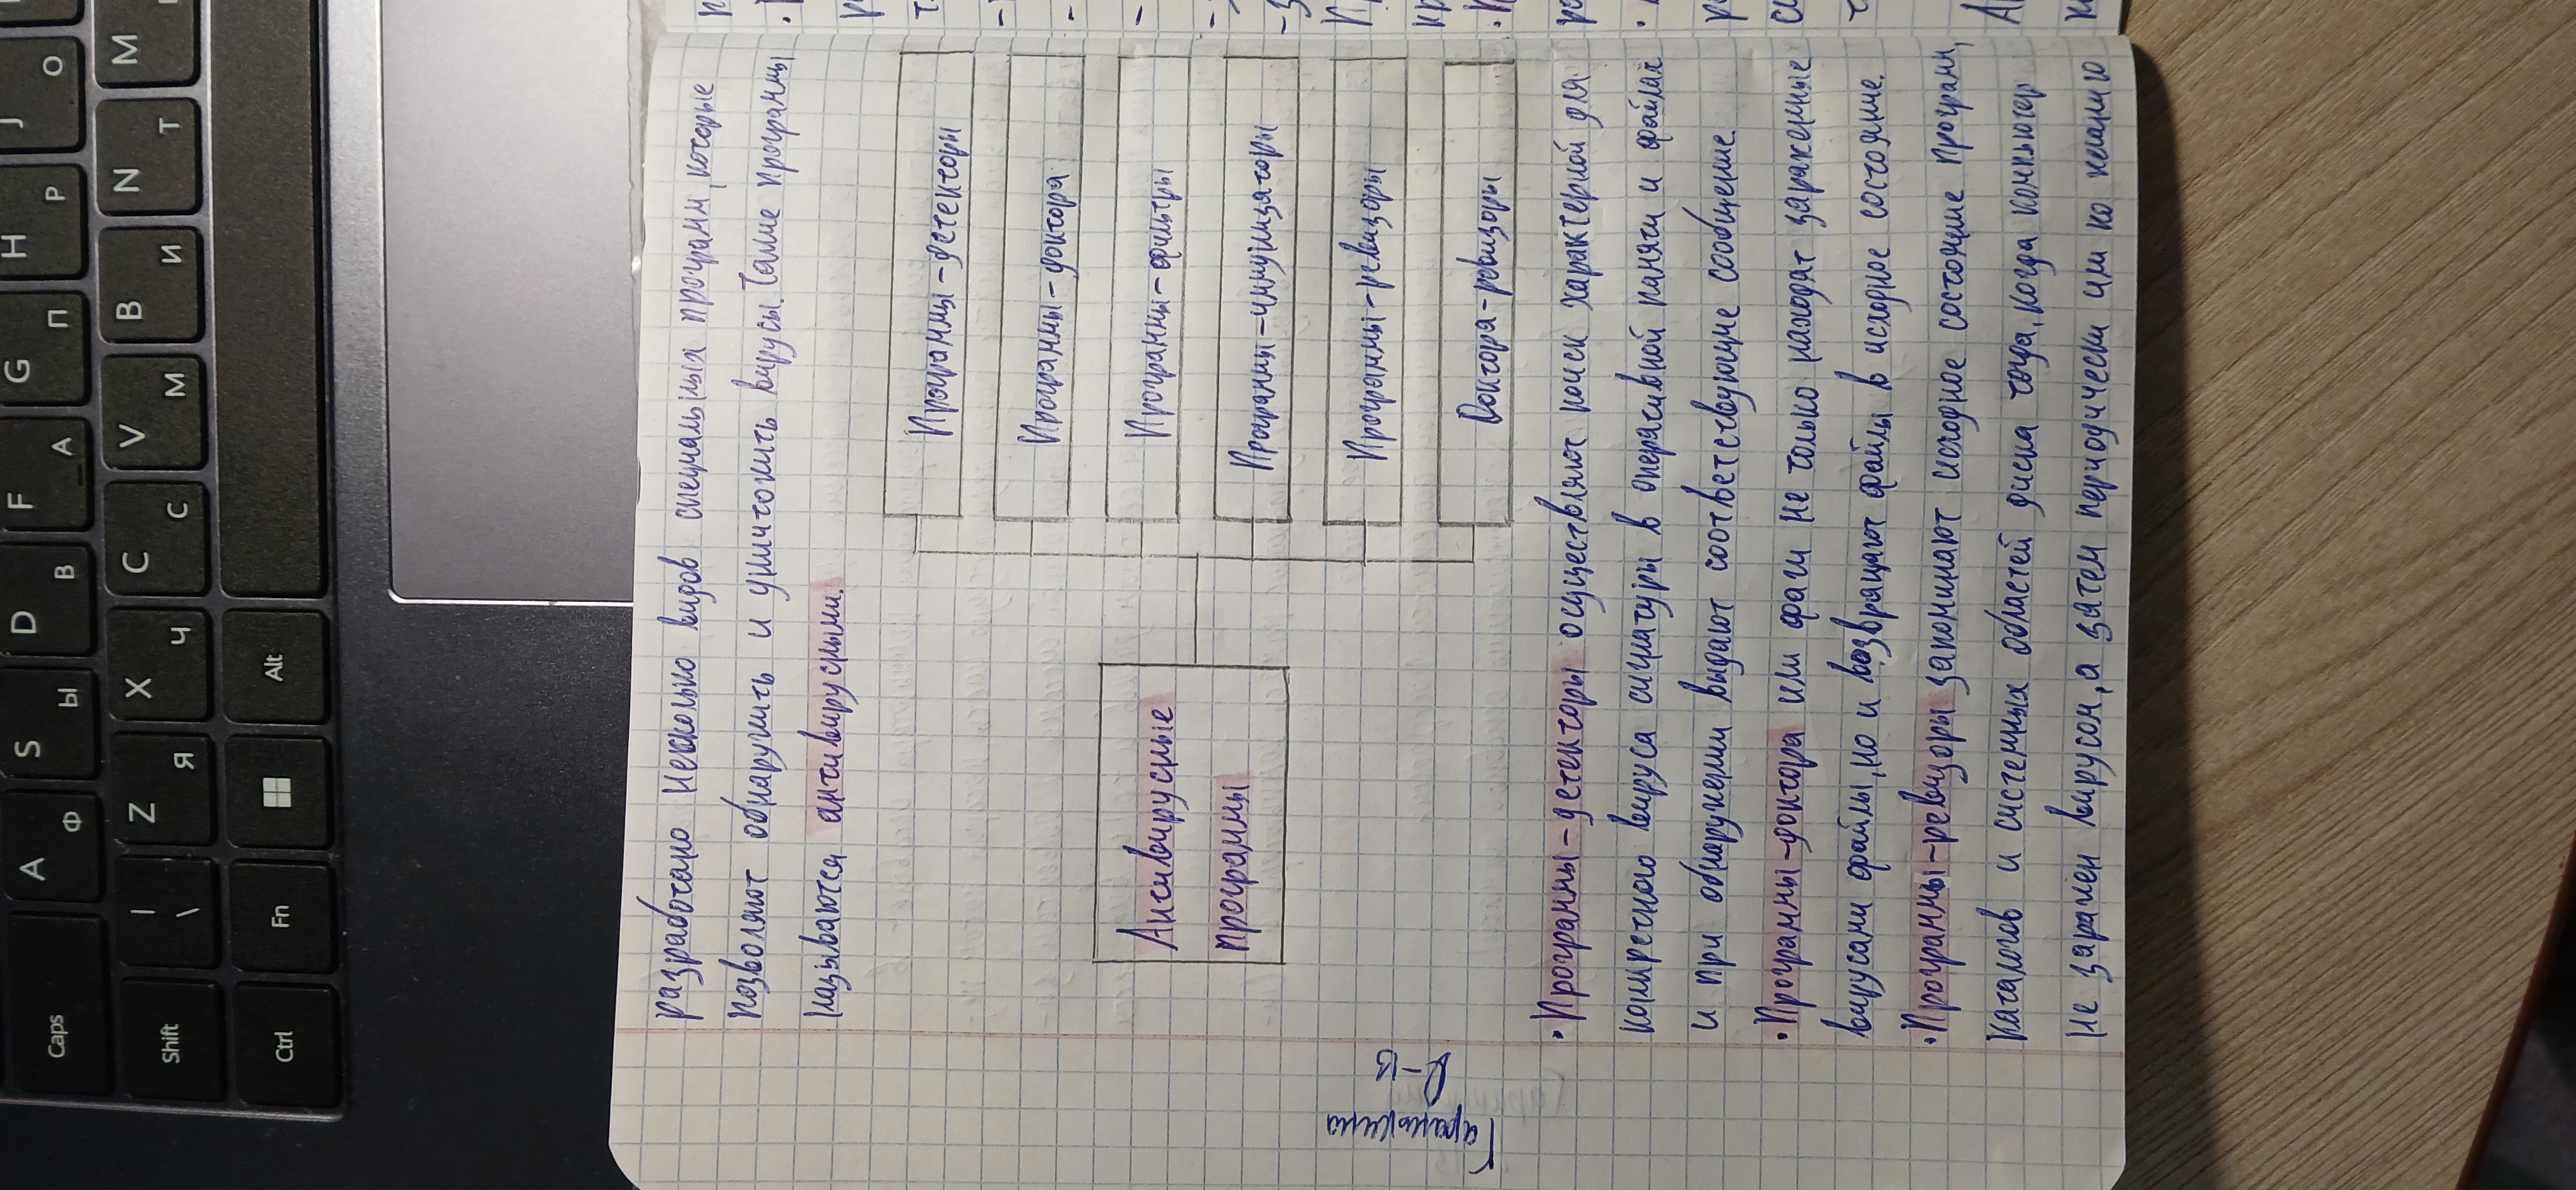 разработано несколько видов специальных программ, которые
позволяют обнаружить и уничтожить вирусы. Такие программы
называются антивирусными.
Антивирусные
программы
Программы-детекторы
Программы-доктора
Программы-фильтры
Программы-ревизоры
Доктора-ревизоры
• Программы-детекторы осуществляют поиск характерной для
конкретного вируса сигнатуры в оперативной памяти и файлах
и при обнаружении выдают соответствующие сообщение
• Программы-доктора или фаги не только находят зараженные
вирусами файлы, но и возвращают файлы в исходное состояние.
• Программы-ревизоры запоминают исходное состояние программ,
каталогов и системных областей диска тогда, когда компьютер
не заражен вирусом, а затем периодически или по желанию
Caps
A Ф
S Ы
D В
F А
G П
H Р
J О
Shift
| \
Z Я
X Ч
C С
V М
B И
N Т
M
Ctrl
Fn
Alt